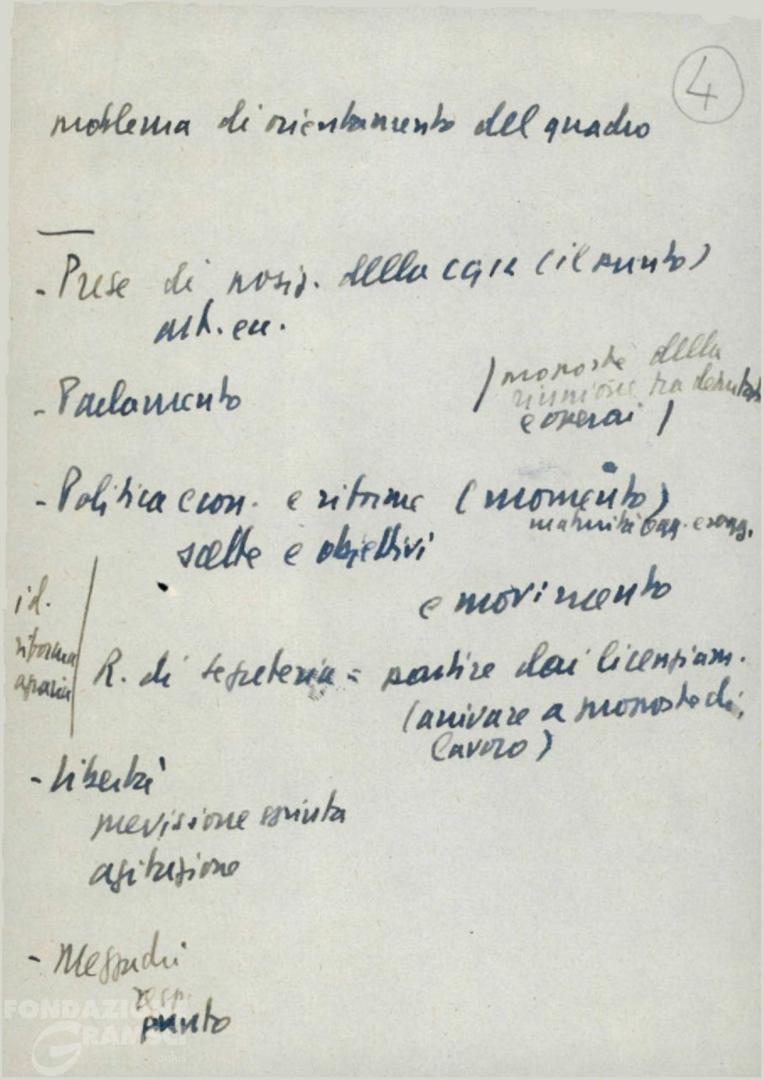 4
problema di orientamento del quadro
- Prese di posiz. della CGIL (il punto)
att. ecc.
- Parlamento
/ proposta della
riunione tra deputati
e operai /
- Politica econ. e riforme (momento)
maturità ogg. e sogg.
scelte e obiettivi
e movimento
id.
riforma
agraria
R. di segreteria = partire dai licenziam.
(arrivare a proposte di
lavoro)
- libertà
previsione spinta
agitazione
- Mezzadri
resp.
punto
FONDAZIONE
GRAMSCI